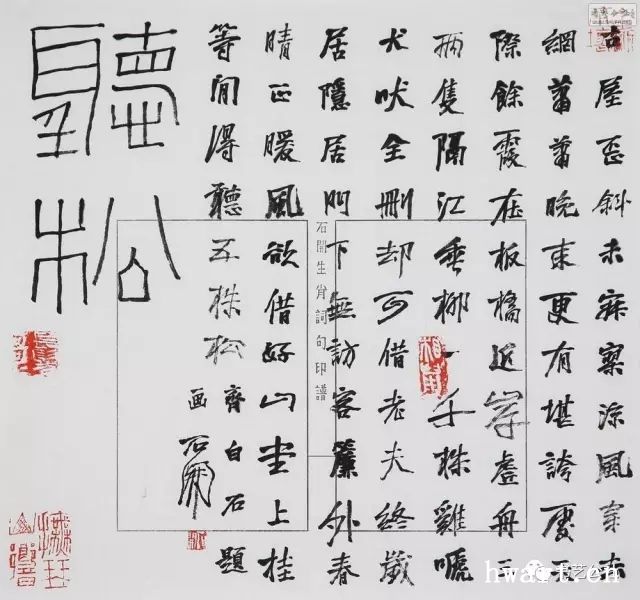 古屋歪斜未寂寥涼風
網晚来更有堪誇處天
際餘霞在板橋近岸虛舟三
兩隻隔江垂柳一千株雞唬
犬吠全删却可借老夫終歲
居隱居門下無訪客簾外春
晴正暖風欲借好山堂上挂
等閒得聽五株松齊白石題
画石開
聽松
石開生肖詞句印譜
hwart.cn